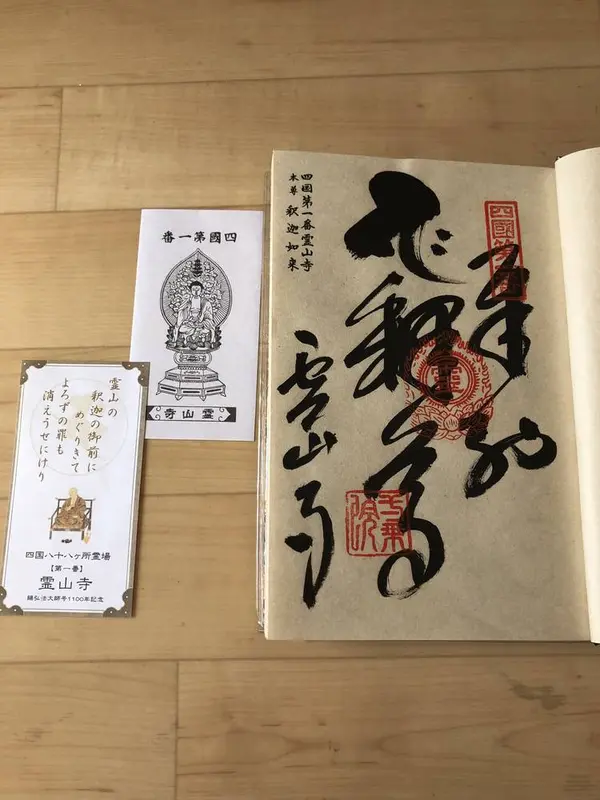 四国第一番霊山寺
本尊 釈迦如来
奉納
霊山寺
四國第一番
四國第一番
霊山寺
霊山の
釈迦の御前に
めぐりきて
よろずの罪も
消えうせにけり
四国八十八ヶ所霊場
【第一番】
霊山寺
賜弘法大師号1100年記念